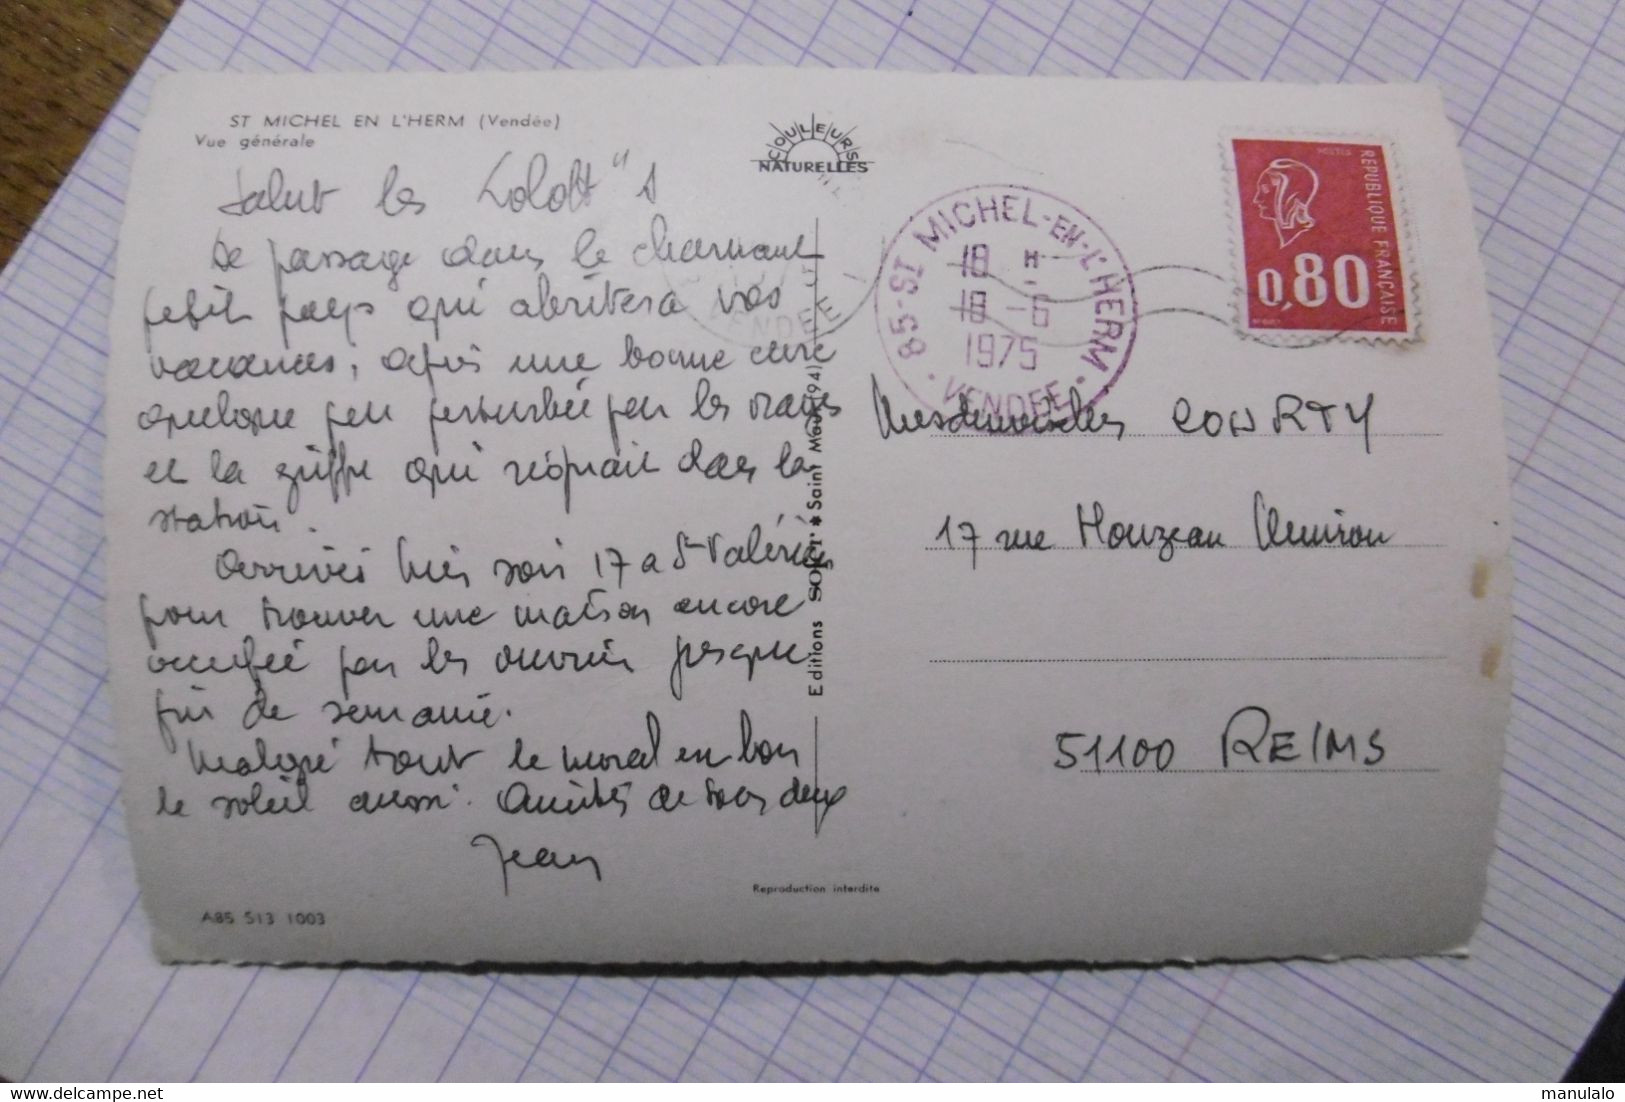 ST MICHEL EN L'HERM (Vendée)
Vue générale
COULEURS
NATURELLES
Salut les Lolott"s
De passage dans le charmant
petit pays qui abritera vos
vacances, après une bonne cure
quelque peu perturbée par les orages
et la griffe qui régnait dans la
station.
Arrivés hier soir 17 a St Valérien
pour trouver une maison encore
occupée par les ouvriers jusque
fin de semaine.
Malgré tout le moral en bon
le soleil aussi. Amitiés de tous deux
Jean
A85 513 1003
Editions SOFI * Saint Maur (94)
Reproduction interdite
85 - ST MICHEL-EN-L'HERM
18 H
18 -6
1975
VENDEE
VENDEE
POSTES
REPUBLIQUE FRANÇAISE
0,80
Mesdemoiselles COURTY
17 rue Houzeau Muiron
51100 REIMS
delcampe.net
manulalo